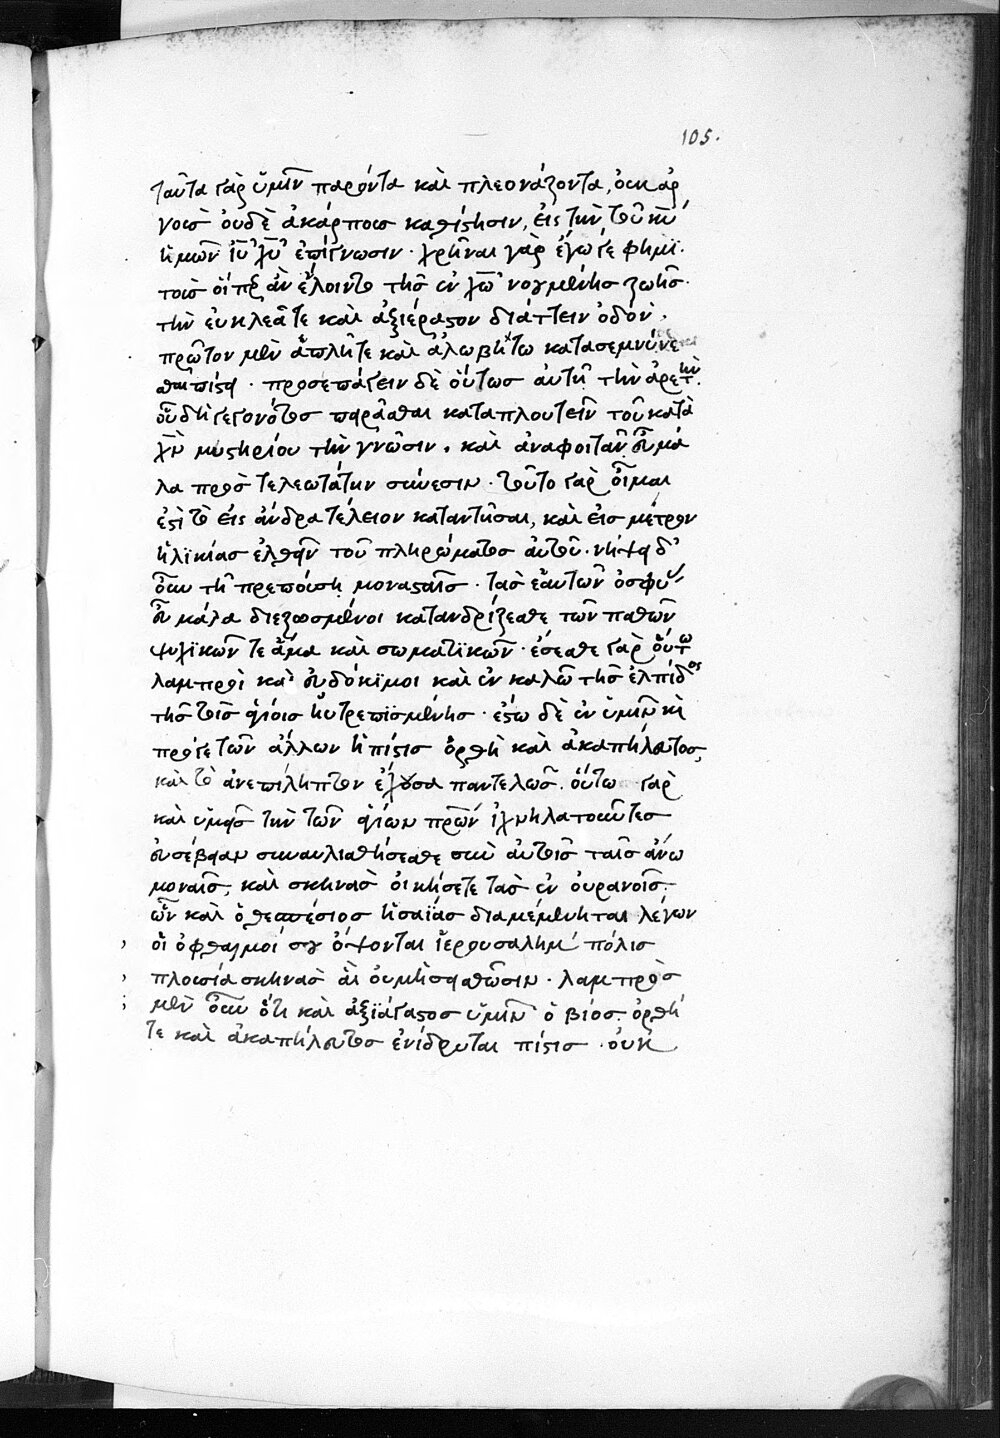 105.
ταῦτα γὰρ ὑμῖν παρόντα καὶ πλεονάζοντα, οὐκ ἀρ
γοὺς οὐδὲ ἀκάρπους καθίστησιν, εἰς τὴν τοῦ κυ
ἡμῶν ιυ χυ ἐπίγνωσιν · χρῆναι γὰρ ἔγωγε φημὶ ·
τοὺς οἵπερ ἂν ἕλοιντο τῆς ἐν χω νοουμένης ζωῆς ·
τὴν εὐκλεᾶ τε καὶ ἀξιέραστον διάττειν ὁδόν ·
πρῶτον μὲν ἁπλῆ τε καὶ ἀλωβήτω κατασεμνύνε
σθαι πίστει · προσεπάγειν δὲ οὕτως αὐτῆ τὴν ἀρετήν ·
οὗ δὴ γεγονότος πειρᾶσθαι καταπλουτεῖν τοῦ κατὰ
χν μυστηρίου τὴν γνῶσιν · καὶ ἀναφοιτᾶν εὖ μά
λα πρὸς τελεωτάτην σύνεσιν · τοῦτο γὰρ οἶμαι
ἐστὶ τὸ εἰς ἄνδρα τέλειον καταντῆσαι, καὶ εἰς μέτρον
ἡλικίας ἐλθεῖν τοῦ πληρώματος αὐτοῦ · νήψει δ'
οὖν τῆ πρεπούση μονασταῖς · τὰς ἑαυτῶν ὀσφῦς
εὖ μάλα διεζωσμένοι κατανδρίζεσθε τῶν παθῶν
ψυχικῶν τε ἅμα καὶ σωματικῶν · ἔσεσθε γὰρ οὕτω
λαμπροὶ καὶ εὐδόκιμοι καὶ ἐν καλῶ τῆς ἐλπίδος
τῆς τοῖς ἁγίοις ηὐτρεπισμένης · ἔστω δὲ ἐν ὑμῖν καὶ
πρό γε τῶν ἄλλων ἡ πίστις ὀρθὴ καὶ ἀκαπήλευτος,
καὶ τὸ ἀνεπίληπτον ἔχουσα παντελῶς · οὕτω γὰρ
καὶ ὑμεῖς τὴν τῶν ἁγίων πρων ἰχνηλατοῦντες
εὐσέβειαν συναυλισθήσεσθε σὺν αὐτοῖς ταῖς ἄνω
μοναῖς, καὶ σκηνὰς οἰκήσετε τὰς ἐν οὐρανοῖς ·
ὧν καὶ ὁ θεσπέσιος ἡσαΐας διαμέμνηται λέγων
οἱ ὀφθαλμοί σου ὄψονται ἱερουσαλημ πόλις
πλουσία σκηνὰς αἳ οὐ μὴ σεισθῶσιν · λαμπρὸς
μὲν οὖν ὅτι καὶ ἀξιάγαστος ὑμῖν ὁ βίος · ὀρθή
τε καὶ ἀκαπήλευτος ἐνίδρυται πίστις · οὐκ